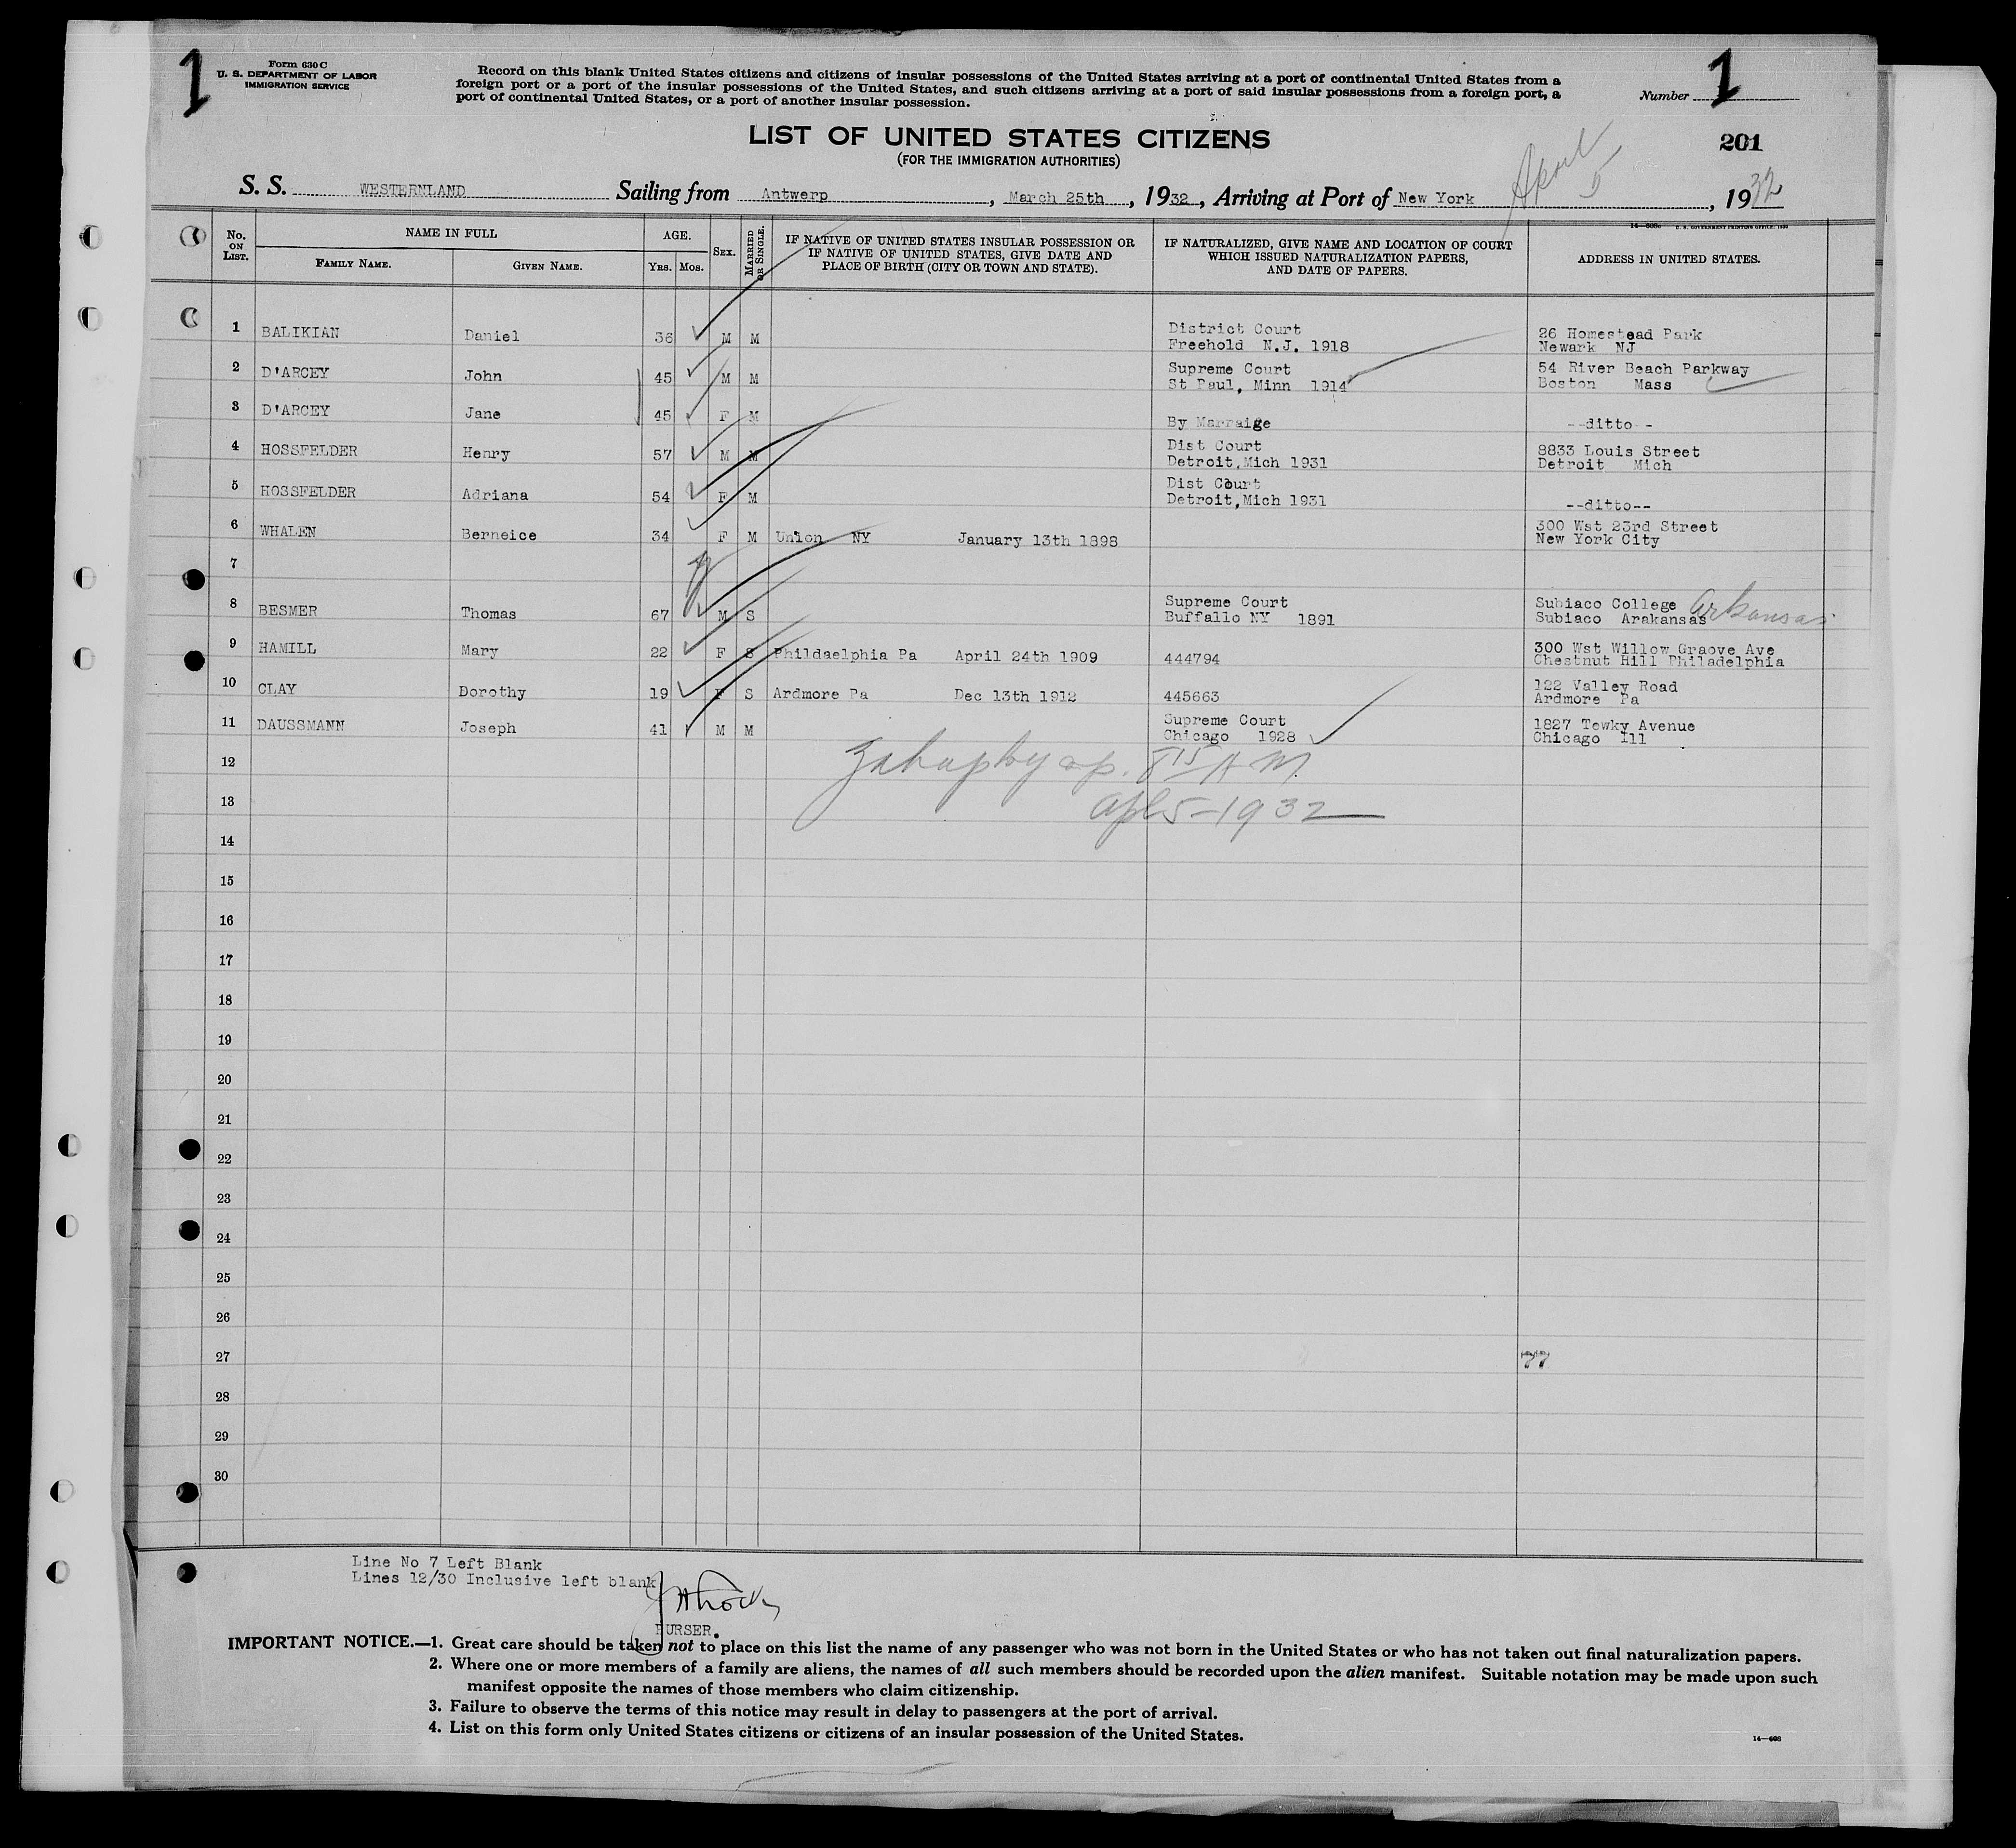 1
Form 630 C
U. S. DEPARTMENT OF LABOR
IMMIGRATION SERVICE
Record on this blank United States citizens and citizens of insular possessions of the United States arriving at a port of continental United States from a
foreign port or a port of the insular possessions of the United States, and such citizens arriving at a port of said insular possessions from a foreign port, a
port of continental United States, or a port of another insular possession.
Number 1
LIST OF UNITED STATES CITIZENS
(FOR THE IMMIGRATION AUTHORITIES)
201
S. S. WESTERNLAND Sailing from Antwerp, March 25th, 1932, Arriving at Port of New York April 5, 1932
14—608c U. S. GOVERNMENT PRINTING OFFICE: 1930
No. ON LIST. NAME IN FULL FAMILY NAME. GIVEN NAME. AGE. YRS. MOS. SEX. MARRIED OR SINGLE. IF NATIVE OF UNITED STATES INSULAR POSSESSION OR IF NATIVE OF UNITED STATES, GIVE DATE AND PLACE OF BIRTH (CITY OR TOWN AND STATE). IF NATURALIZED, GIVE NAME AND LOCATION OF COURT WHICH ISSUED NATURALIZATION PAPERS, AND DATE OF PAPERS. ADDRESS IN UNITED STATES.
1 BALIKIAN Daniel 36 M M District Court Freehold N.J. 1918 26 Homestead Park Newark NJ
2 D'ARCEY John 45 M M Supreme Court St Paul, Minn 1914 54 River Beach Parkway Boston Mass
3 D'ARCEY Jane 45 F M By Marraige --ditto--
4 HOSSFELDER Henry 57 M M Dist Court Detroit,Mich 1931 8833 Louis Street Detroit Mich
5 HOSSFELDER Adriana 54 F M Dist Court Detroit,Mich 1931 --ditto--
6 WHALEN Berneice 34 F M Union NY January 13th 1898 300 Wst 23rd Street New York City
7
8 BESMER Thomas 67 M S Supreme Court Buffallo NY 1891 Subiaco College Subiaco Arakansas Arkansas
9 HAMILL Mary 22 F S Phildaelphia Pa April 24th 1909 444794 300 Wst Willow Graove Ave Chestnut Hill Philadelphia
10 CLAY Dorothy 19 F S Ardmore Pa Dec 13th 1912 445663 122 Valley Road Ardmore Pa
11 DAUSSMANN Joseph 41 M M Supreme Court Chicago 1928 1827 Tewky Avenue Chicago Ill
12 A M.
13 Apl 5-1932
14
15
16
17
18
19
20
21
22
23
24
25
26
27 77
28
29
30
Line No 7 Left Blank
Lines 12/30 Inclusive left blank
PURSER.
IMPORTANT NOTICE.—1. Great care should be taken not to place on this list the name of any passenger who was not born in the United States or who has not taken out final naturalization papers.
2. Where one or more members of a family are aliens, the names of all such members should be recorded upon the alien manifest. Suitable notation may be made upon such
manifest opposite the names of those members who claim citizenship.
3. Failure to observe the terms of this notice may result in delay to passengers at the port of arrival.
4. List on this form only United States citizens or citizens of an insular possession of the United States.
14—608